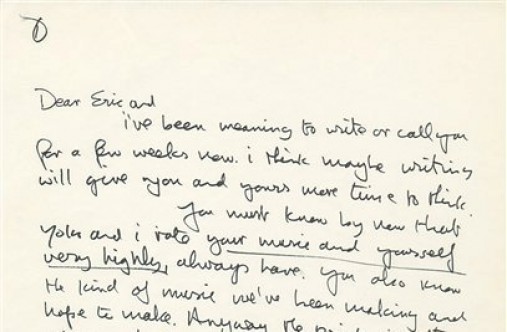 ①
Dear Eric and
i've been meaning to write or call you
for a few weeks now. i think maybe writing
will give you and yours more time to think.
You must know by now that
Yoko and i rate your music and yourself
very highly, always have. You also know
the kind of music we've been making and
hope to make. Anyway the